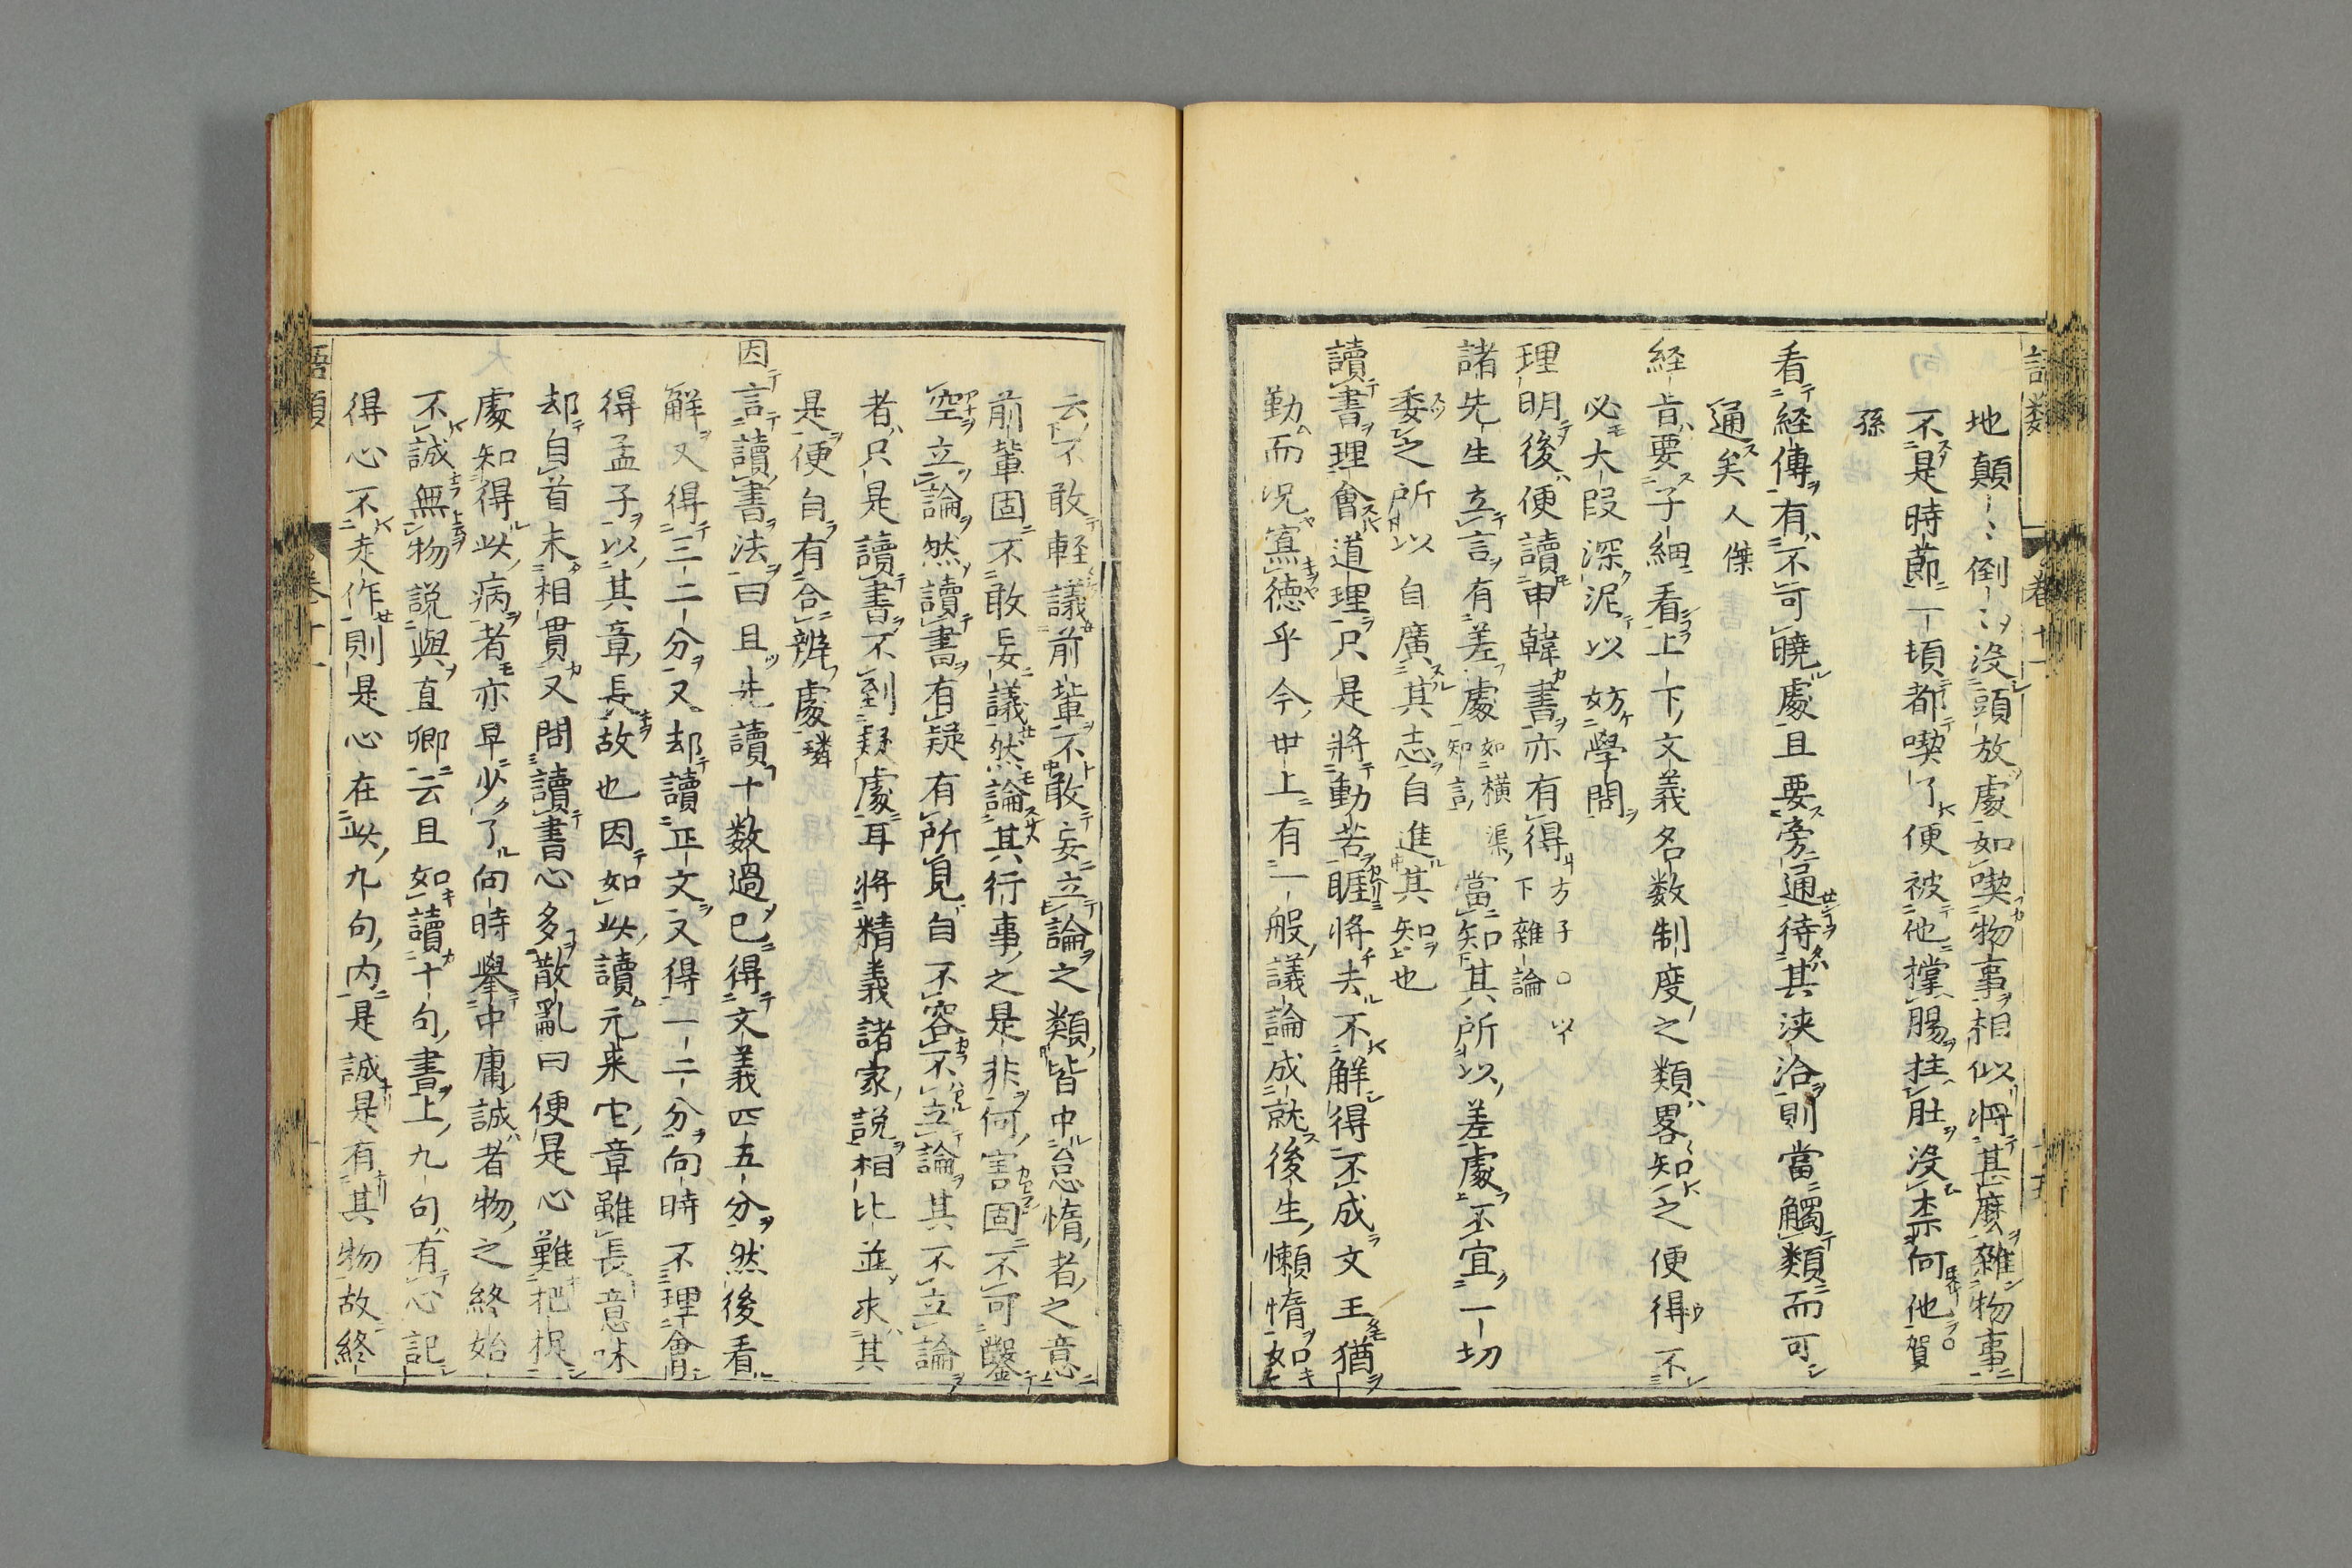 地顛々倒々沒頭放處如喫物事相似將甚麼雜物事
不是時莭一頃都喫了便被他撑腸拄肚沒柰何他賀
孫
看経傳有不可曉處且要旁通待其浹洽則當觸類而可
通矣人傑
経旨要子細看上下文義名数制度之類畧知之便得不
必大叚深泥以妨學問
理明後便讀申韓書亦有得方子○以下雜論
諸先生立言有差處如橫渠知言當知其所以差處不宜一切
委之所以自廣其志自進其知也
讀書理會道理只是將動苦睚將去不解得不成文王猶
勤而况寡德乎今世上有一般議論成就後生懶惰如
云不敢軽議前輩不敢妄立論之類皆中怠惰者之意
前輩固不敢妄議然論其行事之是非何害固不可鑿
空立論然讀書有疑有所見自不容不立論其不立論
者只是讀書不到疑處耳將精義諸家說相比並求其
是便自有合辨處璘
因言讀書法曰且先讀十数過已得文義四五分然後看
解又得三二分又却讀正文又得一二分向時不理會
得孟子以其章長故也因如此讀元来它章雖長意味
却自首末相貫又問讀書心多散亂曰便是心難把捉
處知得此病者亦早少了向時舉中庸誠者物之終始
不誠無物說與直卿云且如讀十句書上九句有心記
得心不走作則是心在此九句内是誠是有其物故終
語類　卷十一